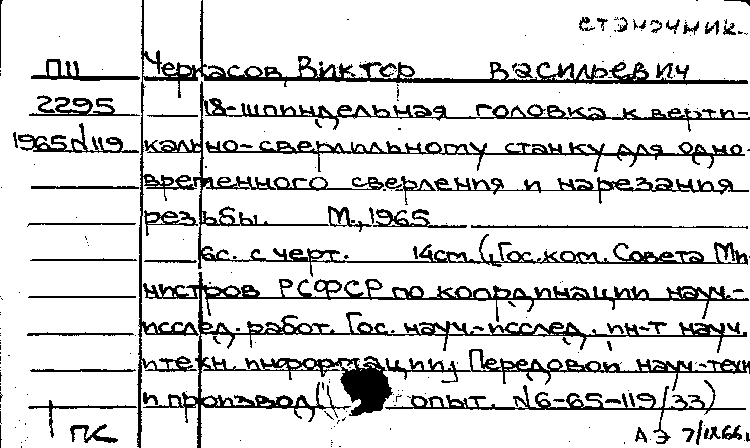 станочник.
П11 Черкасов, Виктор Васильевич
2295 18-шпиндельная головка к верти-
1965/119 кально-сверлильному станку для одно-
временного сверления и нарезания
резьбы. М., 1965
6с. с черт. 14см. (Гос. ком. Совета Ми-
нистров РСФСР по координации науч.-
исслед. работ. Гос. науч.-исслед. ин-т науч.
и техн. информации) Передовой науч.-техн
и производ опыт. №6-65-119/33)
ПК АЭ 7/IX66